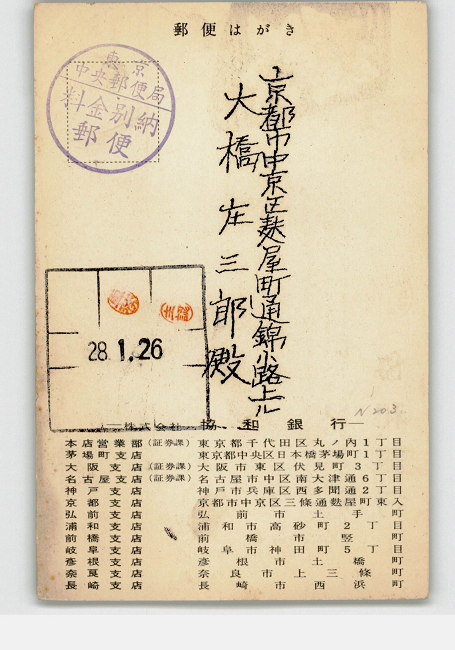 郵便はがき
東京
中央郵便局
料金別納
郵便
京都市中京区麸屋町通錦小路上ル
大橋庄三郎殿
28.1.26
N203.
株式会社 協和銀行
本店営業部(証券課) 東京都千代田区丸ノ内1丁目
茅場町支店 東京都中央区日本橋茅場町1丁目
大阪支店(証券課) 大阪市東区伏見町3丁目
名古屋支店(証券課) 名古屋市中区南大津通6丁目
神戸支店 神戸市兵庫区西多聞通2丁目
京都支店 京都市中京区三條通麩屋町東入
弘前支店 弘前市土手町
浦和支店 浦和市高砂町2丁目
前橋支店 前橋市竪町
岐阜支店 岐阜市神田町5丁目
彦根支店 彦根市土橋町
奈良支店 奈良市上三條町
長崎支店 長崎市西浜町